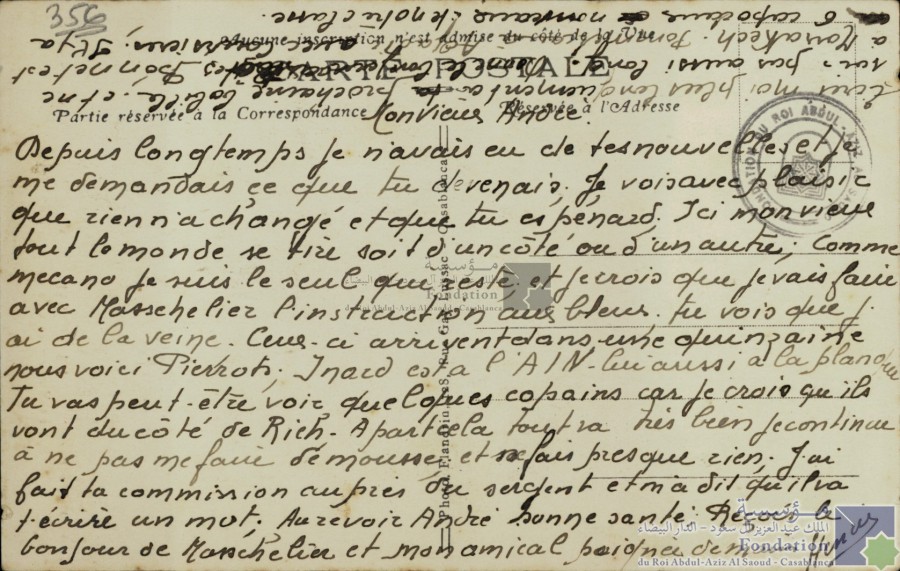 356
Aucune inscription n'est admise du côté de la Vue
CARTE POSTALE
Partie réservée à la Correspondance
Réservée à l'Adresse
Mon vieux André.
Depuis longtemps je n'avais eu de tes nouvelles et je
me demandais ce que tu devenais. Je vois avec plaisir
que rien n'a changé et que tu es pénard. Ici mon vieux
tout le monde se tire soit d'un côté ou d'un autre; Comme
mecano je suis le seul que reste et je crois que je vais faire
avec Masschelier l'instruction aux bleus. tu vois que j'
ai de la veine. Ceux-ci arrivent dans une quinzaine
nous voici Pierrots; Inard est à l'AIN. lui aussi à la planque
Tu vas peut-être voir quelques copains car je crois qu'ils
vont du côté de Rich. A part cela tout va très bien je continue
à ne pas me faire de mousse et fais presque rien. J'ai
fait ta commission auprès du sergent et m'a dit qu'il va
t'écrire un mot. Au revoir André bonne santé. le
bonjour de Masschelier et mon amical poigné de main
Ecris moi plus longuement la prochaine
sois pas aussi long.
à Marrakech.
6 nouveaux de notre classe
Photo Flandrin, rue Casablanca
FONDATION DU ROI ABDUL AZIZ AL SAOUD
مؤسسة
الملك عبد العزيز آل سعود - الدار البيضاء
Fondation
du Roi Abdul-Aziz Al Saoud - Casablanca
مؤسسة
الملك عبد العزيز آل سعود - الدار البيضاء
Fondation
du Roi Abdul-Aziz Al Saoud - Casablanca